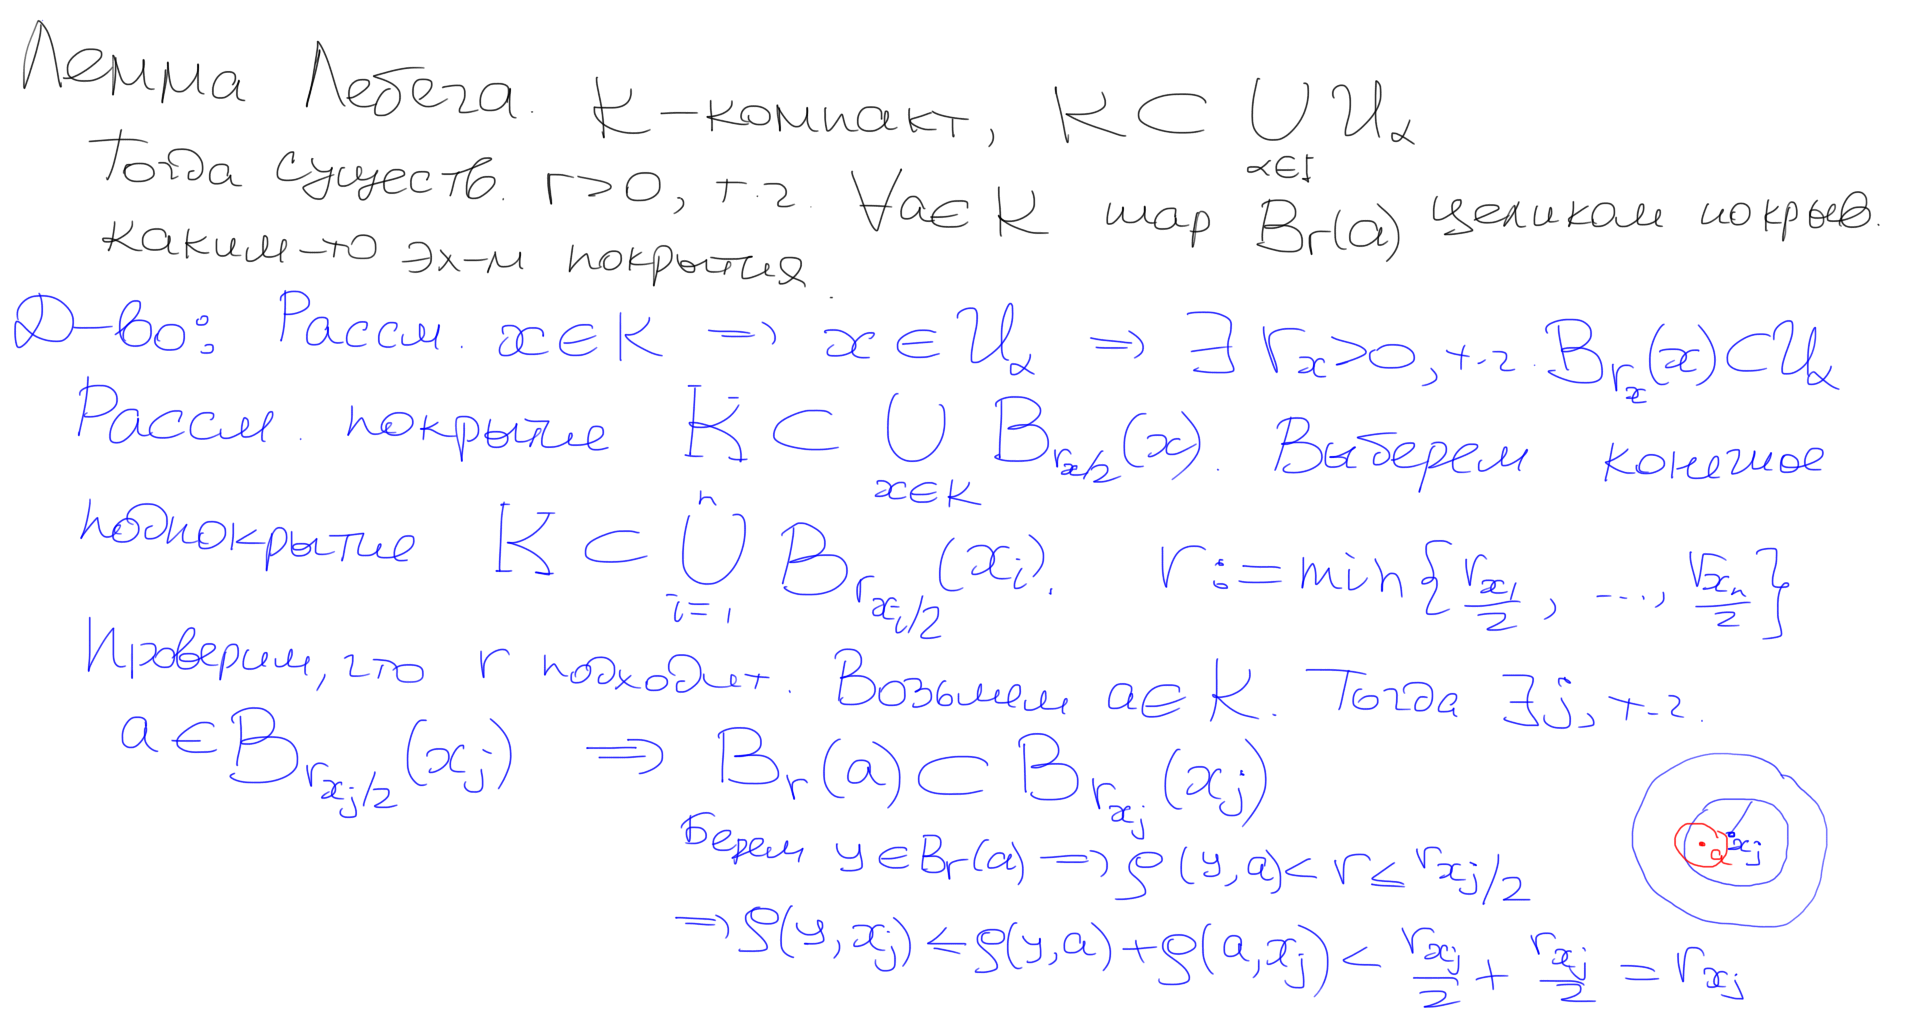 Лемма Лебега. K – компакт, K ⊂ ⋃_{α∈I} U_α
Тогда существ. r>0, т.ч. ∀a∈K шар B_r(a) целиком покрыв.
каким-то эл-м покрытия.
Д-во: Рассм. x∈K ⇒ x∈U_α ⇒ ∃ r_x>0, т.ч. B_{r_x}(x)⊂U_α
Рассм. покрытие K ⊂ ⋃_{x∈K} B_{r_x/2}(x). Выберем конечное
подпокрытие K ⊂ ⋃_{i=1}^{n} B_{r_{x_i}/2}(x_i). r := min{r_{x_1}/2, ..., r_{x_n}/2}
Проверим, что r подходит. Возьмем a∈K. Тогда ∃j, т.ч.
a∈B_{r_{x_j}/2}(x_j) ⇒ B_r(a)⊂B_{r_{x_j}}(x_j)
Берем y∈B_r(a) ⇒ ρ(y,a)<r≤r_{x_j}/2
⇒ ρ(y,x_j)≤ρ(y,a)+ρ(a,x_j)< r_{x_j}/2 + r_{x_j}/2 = r_{x_j}
a x_j